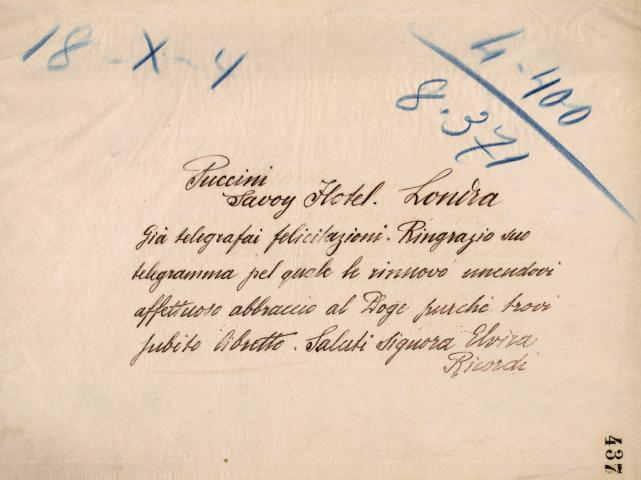 18-X-4
4.400
8.371
Puccini
Savoy Hotel. Londra
Già telegrafai felicitazioni. Ringrazio suo
telegramma pel quale le rinnovo unendovi
affettuoso abbraccio al Doge purchè trovi
subito libretto. Saluti Signora Elvira
Ricordi
437